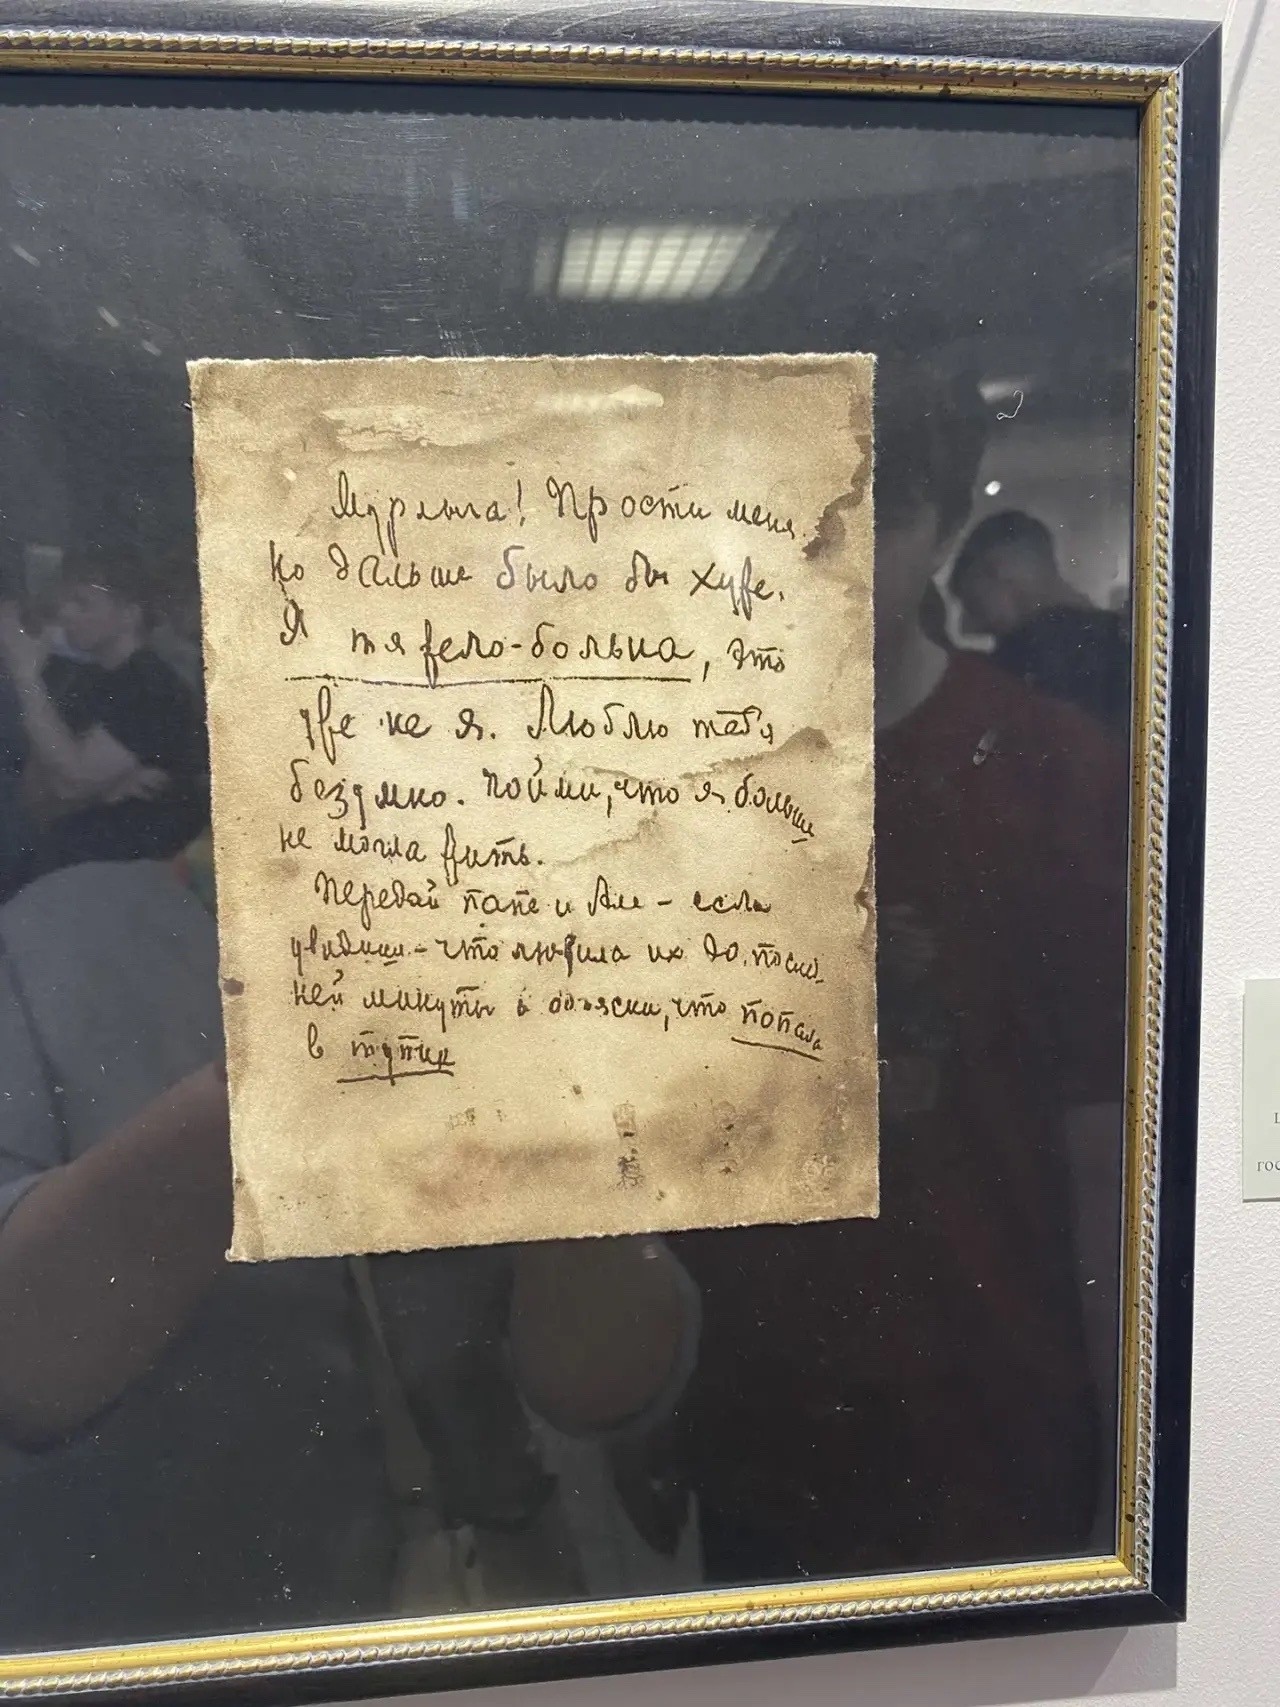 Мурлыга! Прости меня.
Но дальше было бы хуже.
Я тяжело-больна, это
уже не я. Люблю тебя
безумно. Пойми, что я больше
не могла жить.
Передай папе и Але – если
увидишь – что любила их до послед-
ней минуты и объясни, что попала
в тупик
гос